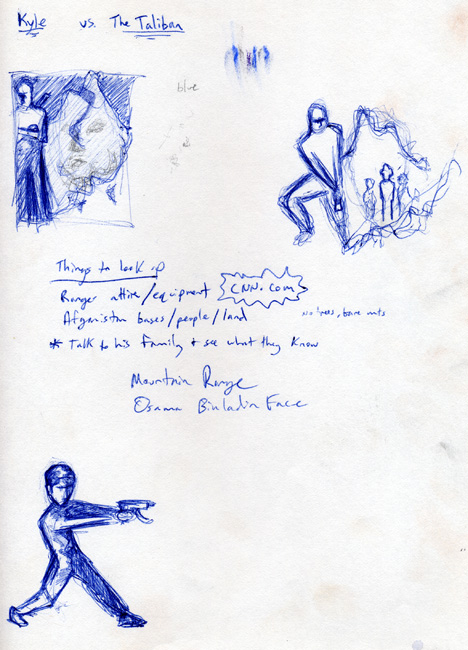 Kyle vs. The Taliban
blue
Things to look up
Ranger attire/equipment CNN.com
Afganistan bases/people/land
no trees, bare mts
* Talk to his family + see what they know
Mountain Range
Osama Binladin Face